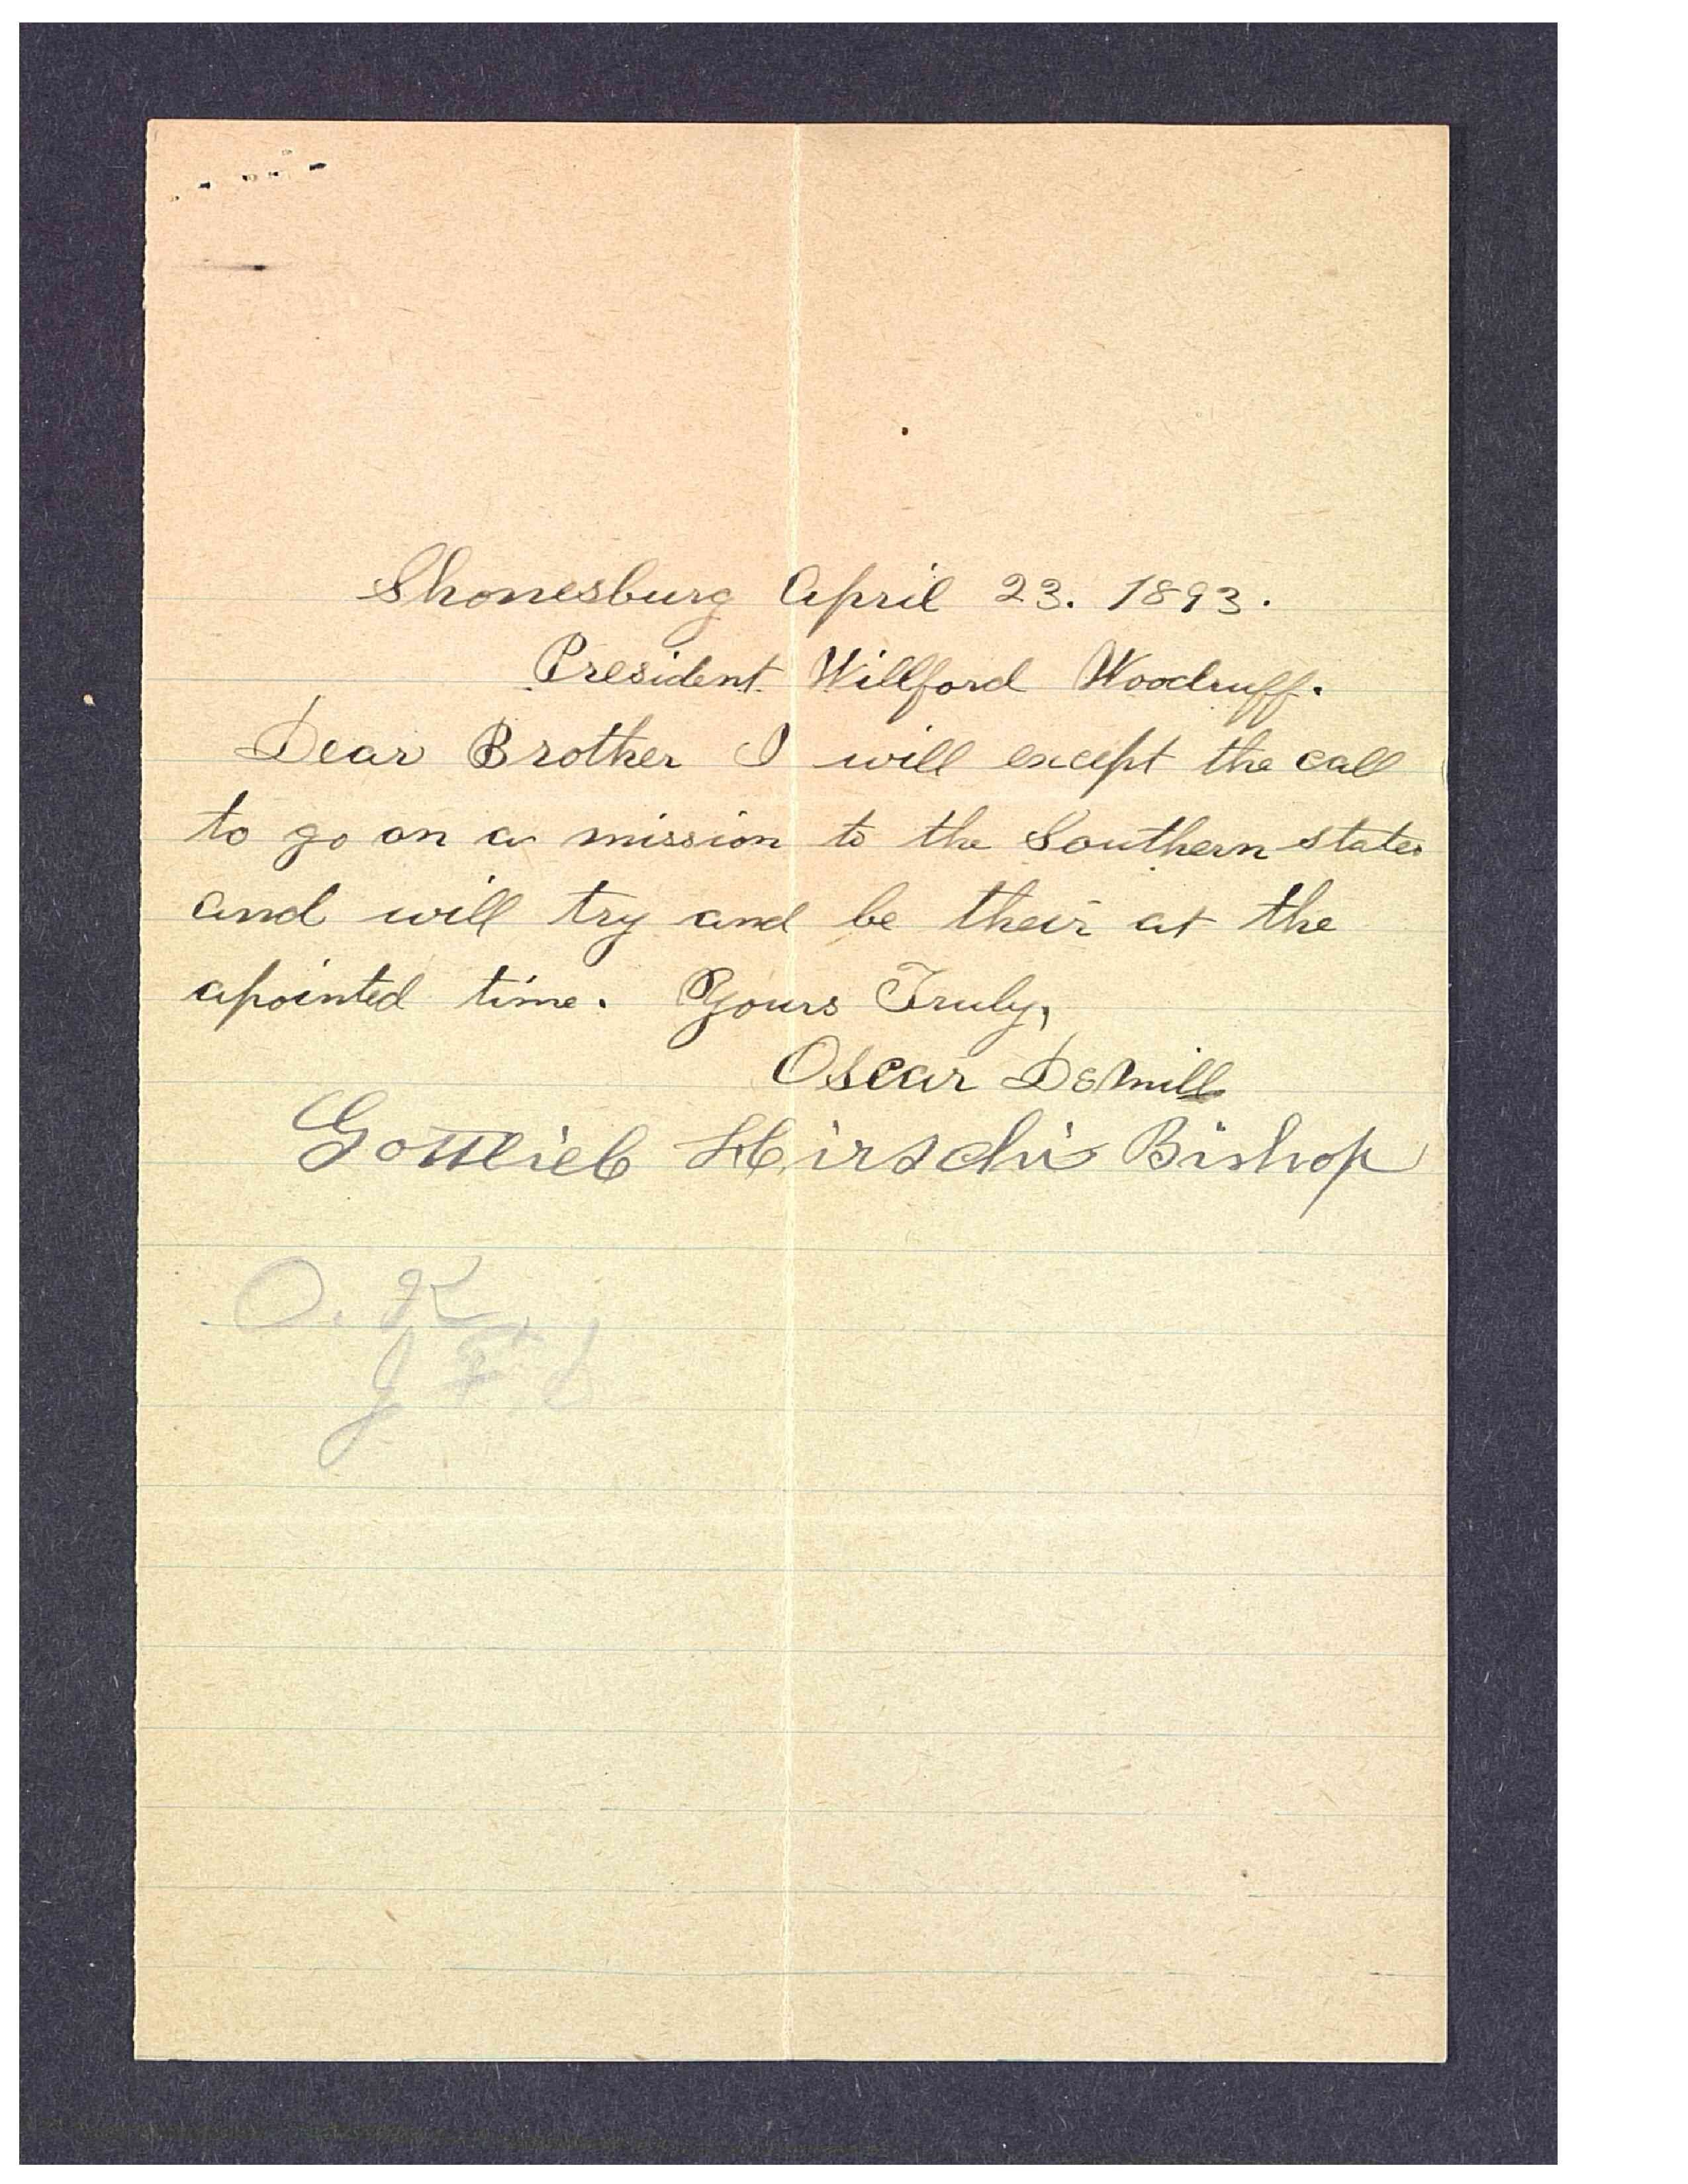 Shonesburg April 23. 1893.
President Willford Woodruff.
Dear Brother I will except the call
to go on a mission to the Southern states
and will try and be their at the
apointed time. Yours Truly,
Oscar DeMill
Gottlieb Hirschi Bishop
O. K.
J. F. S.